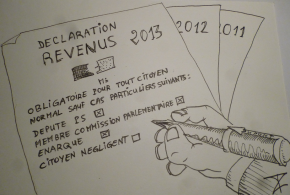 DECLARATION
REVENUS 2013
2012
2011
OBLIGATOIRE POUR TOUT CITOYEN
NORMAL SAUF CAS PARTICULIERS SUIVANTS:
DEPUTE PS
MEMBRE COMMISSION PARLEMENTAIRE
ENARQUE
CITOYEN NEGLIGENT